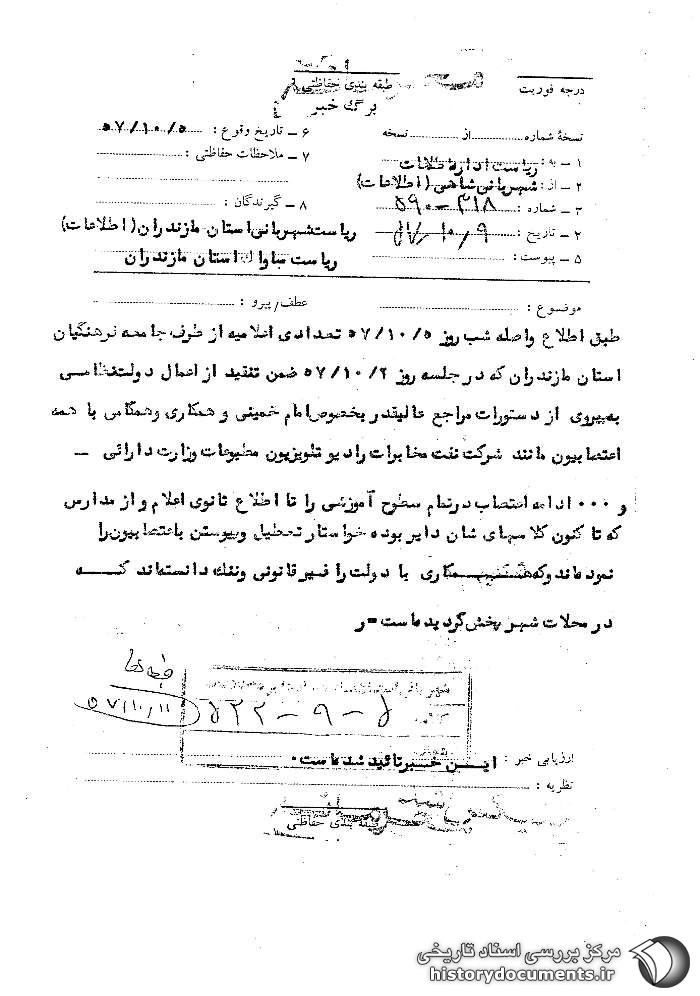 طبقه بندی حفاظتی
درجه فوریت
برگ خبر
نسخهٔ شماره از نسخه
۱ ـ به : ریاست اداره اطلاعات
۲ ـ از : شهربانی شاهی (اطلاعات)
۳ ـ شماره : ۵۹۰ـ۳۱۸
۴ ـ تاریخ : ۵۷/۱۰/۹
۵ ـ پیوست :
۶ ـ تاریخ وقوع : ۵۷/۱۰/۵
۷ ـ ملاحظات حفاظتی :
۸ ـ گیرندگان :
ریاست شهربانی استان مازندران (اطلاعات)
ریاست ساواک استان مازندران
موضوع : عطف/پیرو :
طبق اطلاع واصله شب روز ۵۷/۱۰/۵ تعدادی اعلامیه از طرف جامعه فرهنگیان
استان مازندران که در جلسه روز ۵۷/۱۰/۲ ضمن تنقید از اعمال دولت نظامی
به پیروی از دستورات مراجع عالیقدر بخصوص امام خمینی و همکاری وهمگامی با همه
اعتصابیون مانند شرکت نفت مخابرات رادیو تلویزیون مطبوعات وزارت دارائی ـ
و ۰۰۰ ادامه اعتصاب درتمام سطوح آموزشی را تا اطلاع ثانوی اعلام و از مدارس
که تا کنون کلاسهای شان دایر بوده خواستار تعطیل وپیوستن باعتصابیون را
نموده‌اند وکه هرگونه همکاری با دولت را غیر قانونی وننگ دانسته‌اند کـــه
در محلات شهر پخش گردیده است =ر
۵۷/۱۰/۱۱
۵۲۲ـ۹ـ۵
ارزیابی خبر : ایــن خــبر تائید شده است۰
نظریه :
طبقه بندی حفاظتی
مرکز بررسی اسناد تاریخی
historydocuments.ir